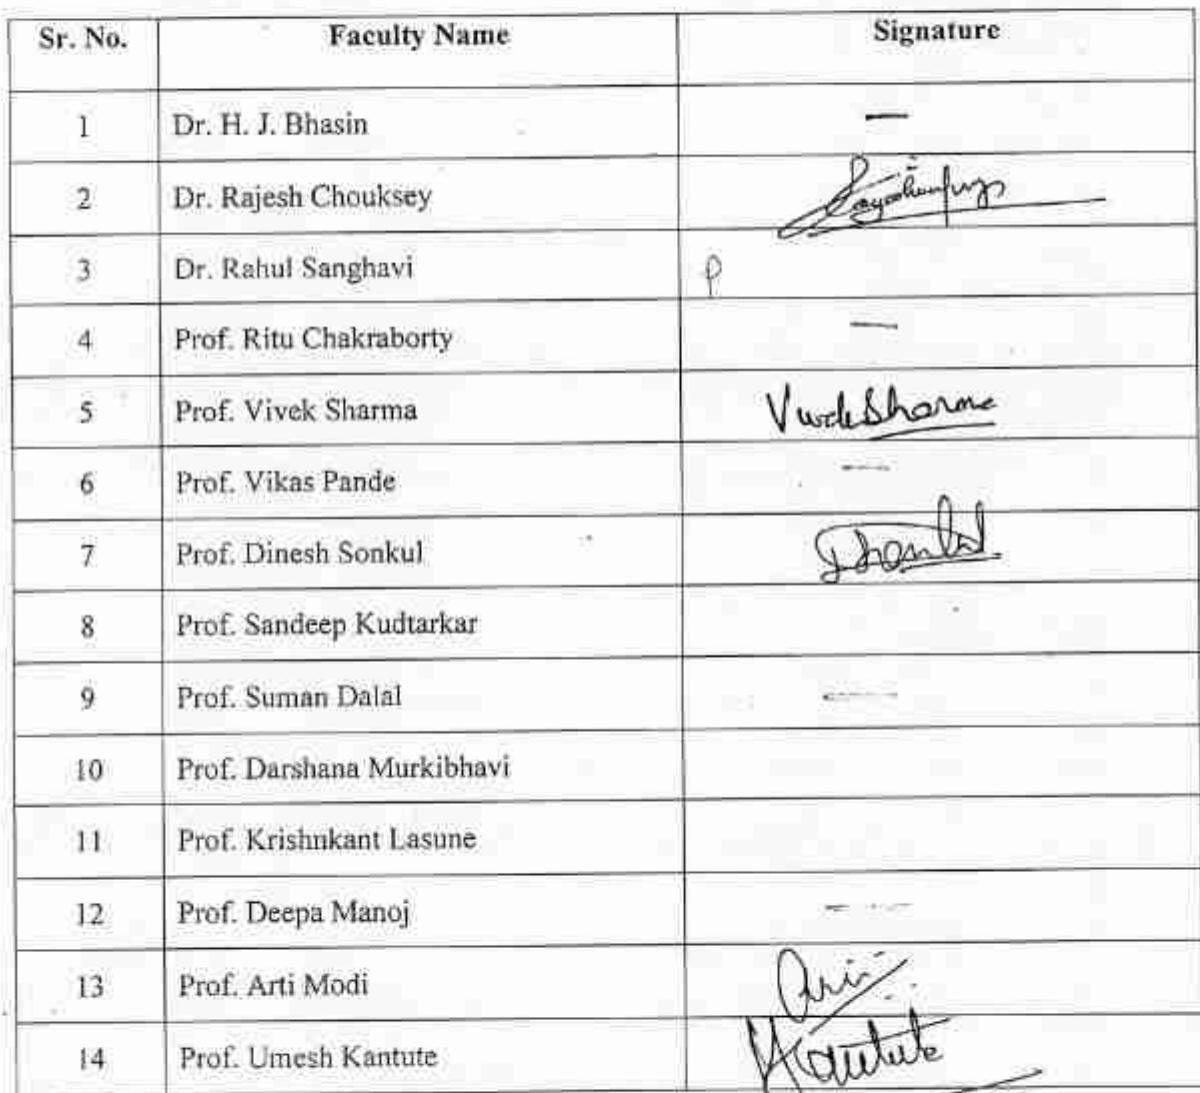 Sr. No. Faculty Name Signature
1 Dr. H. J. Bhasin —
2 Dr. Rajesh Chouksey
3 Dr. Rahul Sanghavi P
4 Prof. Ritu Chakraborty —
5 Prof. Vivek Sharma Vivek Sharma
6 Prof. Vikas Pande —
7 Prof. Dinesh Sonkul
8 Prof. Sandeep Kudtarkar
9 Prof. Suman Dalal —
10 Prof. Darshana Murkibhavi
11 Prof. Krishnkant Lasune
12 Prof. Deepa Manoj —
13 Prof. Arti Modi
14 Prof. Umesh Kantute Kantute